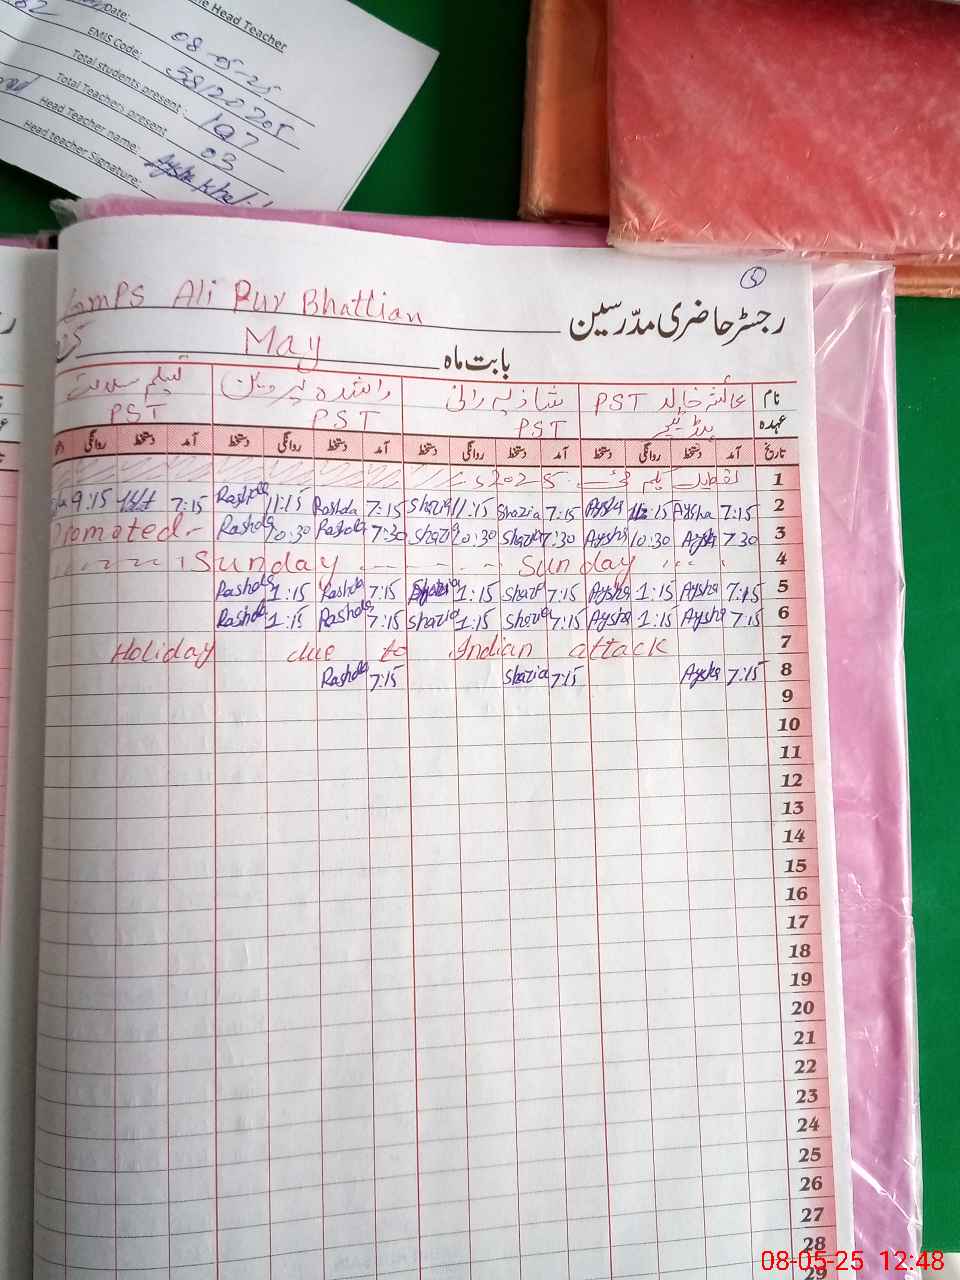 Head Teacher
Date: 08-05-25
EMIS Code: 38120205
Total students present : 197
Total Teachers present 03
Head Teacher name: Aysha Khalid
Head teacher Signature:
5
GMPS Ali Pur Bhattian
رجسٹر حاضری مدرّسین
May
بابت ماہ
نام عائشہ خالد PST شازیہ رانی راشدہ پروین نیلم
عہدہ ہیڈ ٹیچر PST PST PST
تاریخ آمد دستخط روانگی دستخط آمد دستخط روانگی دستخط آمد دستخط روانگی دستخط آمد دستخط روانگی
1 تعطیل یکم مئی 2025
9:15 7:15 Rashda 11:15 Rashda 7:15 Shazia 11:15 Shazia 7:15 Aysha 11:15 Aysha 7:15 2
Promoted- Rashda 10:30 Rashda 7:30 Shazia 10:30 Shazia 7:30 Aysha 10:30 Aysha 7:30 3
Sunday Sunday 4
Rashda 1:15 Rashda 7:15 Shazia 1:15 Shazia 7:15 Aysha 1:15 Aysha 7:15 5
Rashda 1:15 Rashda 7:15 Shazia 1:15 Shazia 7:15 Aysha 1:15 Aysha 7:15 6
Holiday due to Indian attack 7
Rashda 7:15 Shazia 7:15 Aysha 7:15 8
9
10
11
12
13
14
15
16
17
18
19
20
21
22
23
24
25
26
27
28
29
08-05-25 12:48